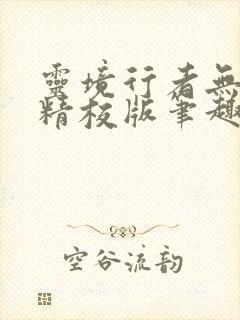 靈境行者無
精校版筆趣
空谷流韵